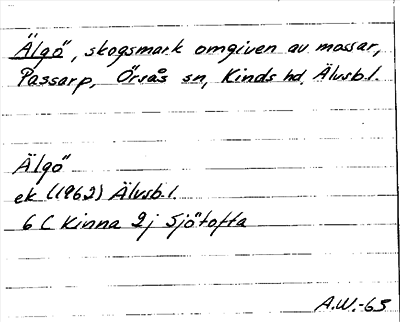 Älgö, skogsmark omgiven av mossar,
Passarp, Örsås sn, Kinds hd, Älvsb.l.
Älgö
ek (1962) Älvsb.l.
6 C Kinna 2j Sjötofta
A.W.-65